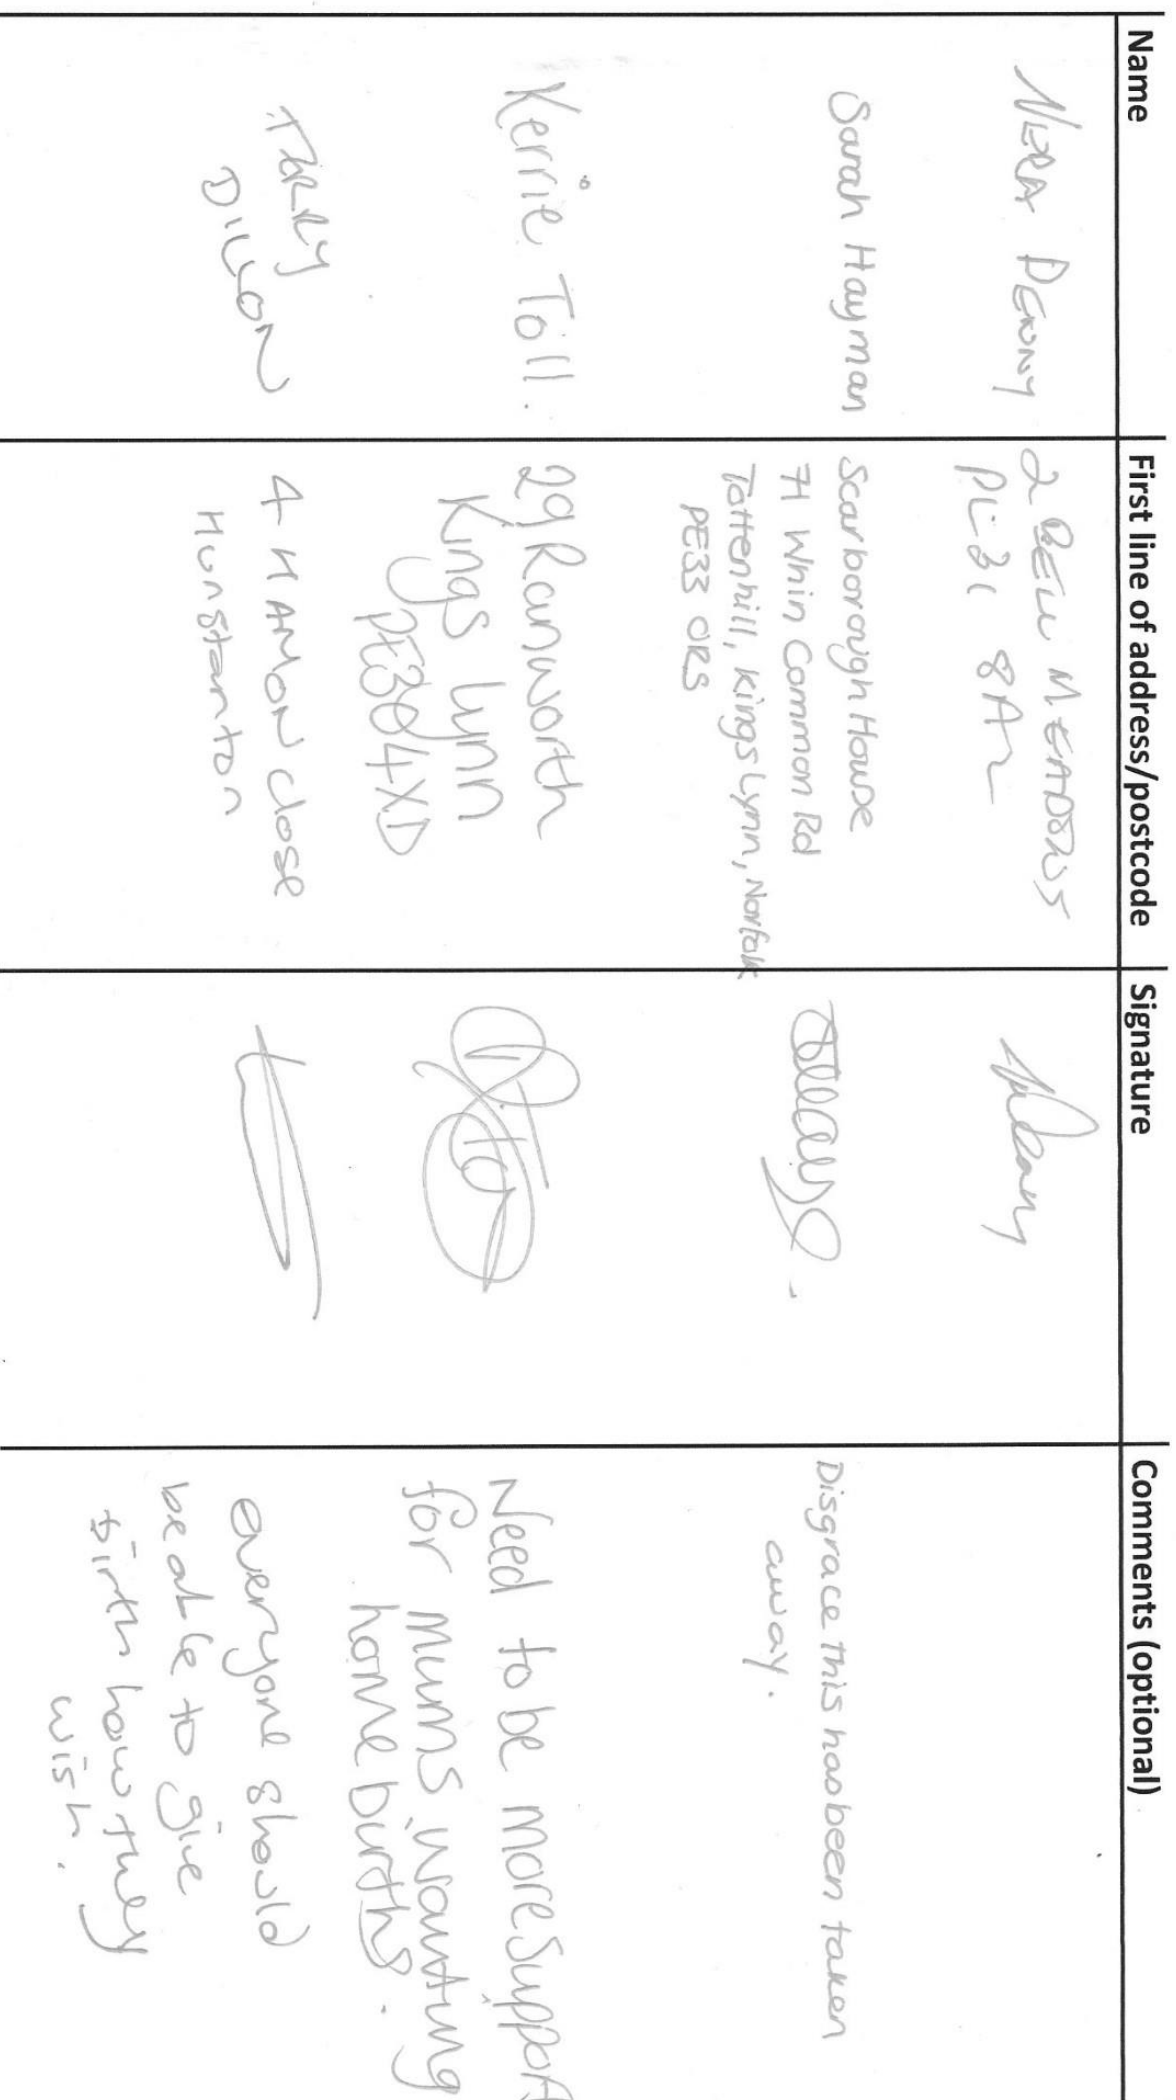 Name First line of address/postcode Signature Comments (optional)
PENNY
2 BELL MEADOWS
8AR
Sarah Hayman
Scarborough House
71 Whin Common Rd
Tottenhill, Kings Lynn, Norfolk
PE33 0RS
Disgrace this has been taken
away.
Kerrie Toll.
29 Ranworth
Kings Lynn
PE30 4XD
Need to be more Support
for mums wanting
home births.
TERRY
DILLON
4 HAMON close
Hunstanton
everyone should
be able to give
birth how they
wish.